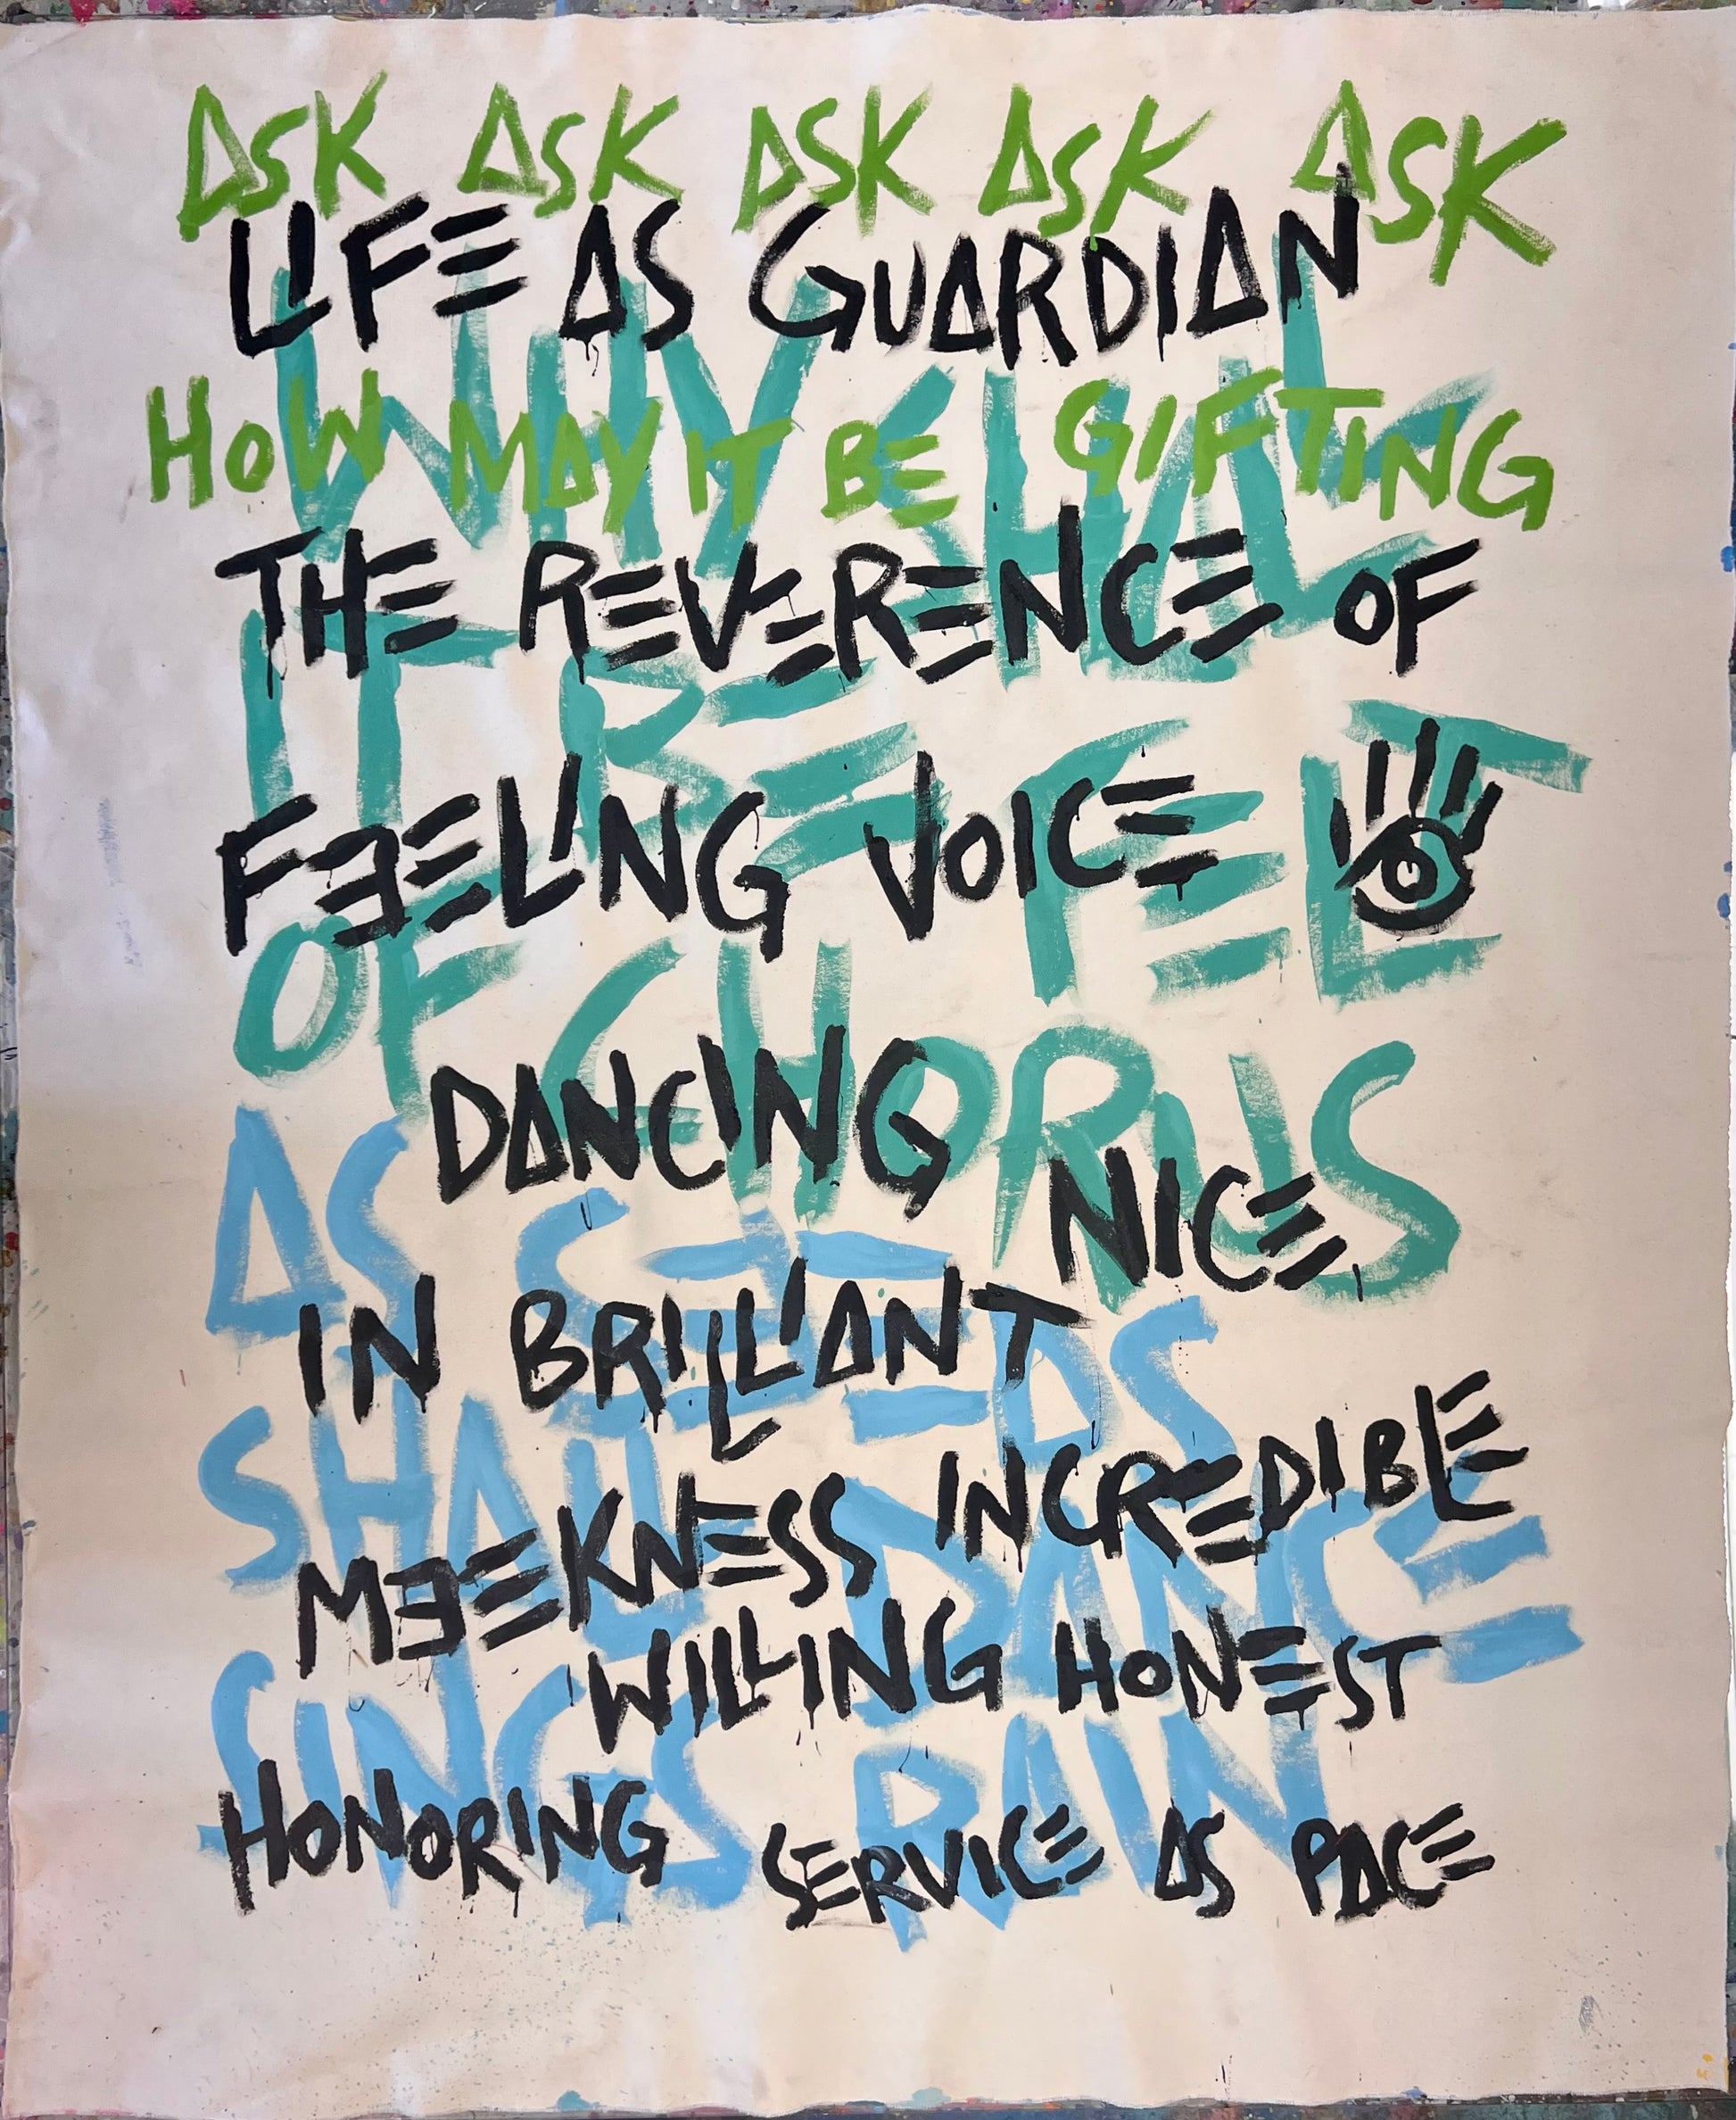 ASK ASK ASK ASK ASK
LIFE AS GUARDIAN
HOW MAY IT BE GIFTING
THE REVERENCE OF
FEELING VOICE
DANCING
NICE
IN BRILLIANT
MEEKNESS INCREDIBLE
WILLING HONEST
HONORING SERVICE AS PACE
WHY SHALL
IT BE FELT
OF CHORUS
AS SEEDS
SHALL DANCE
SINGS RAIN